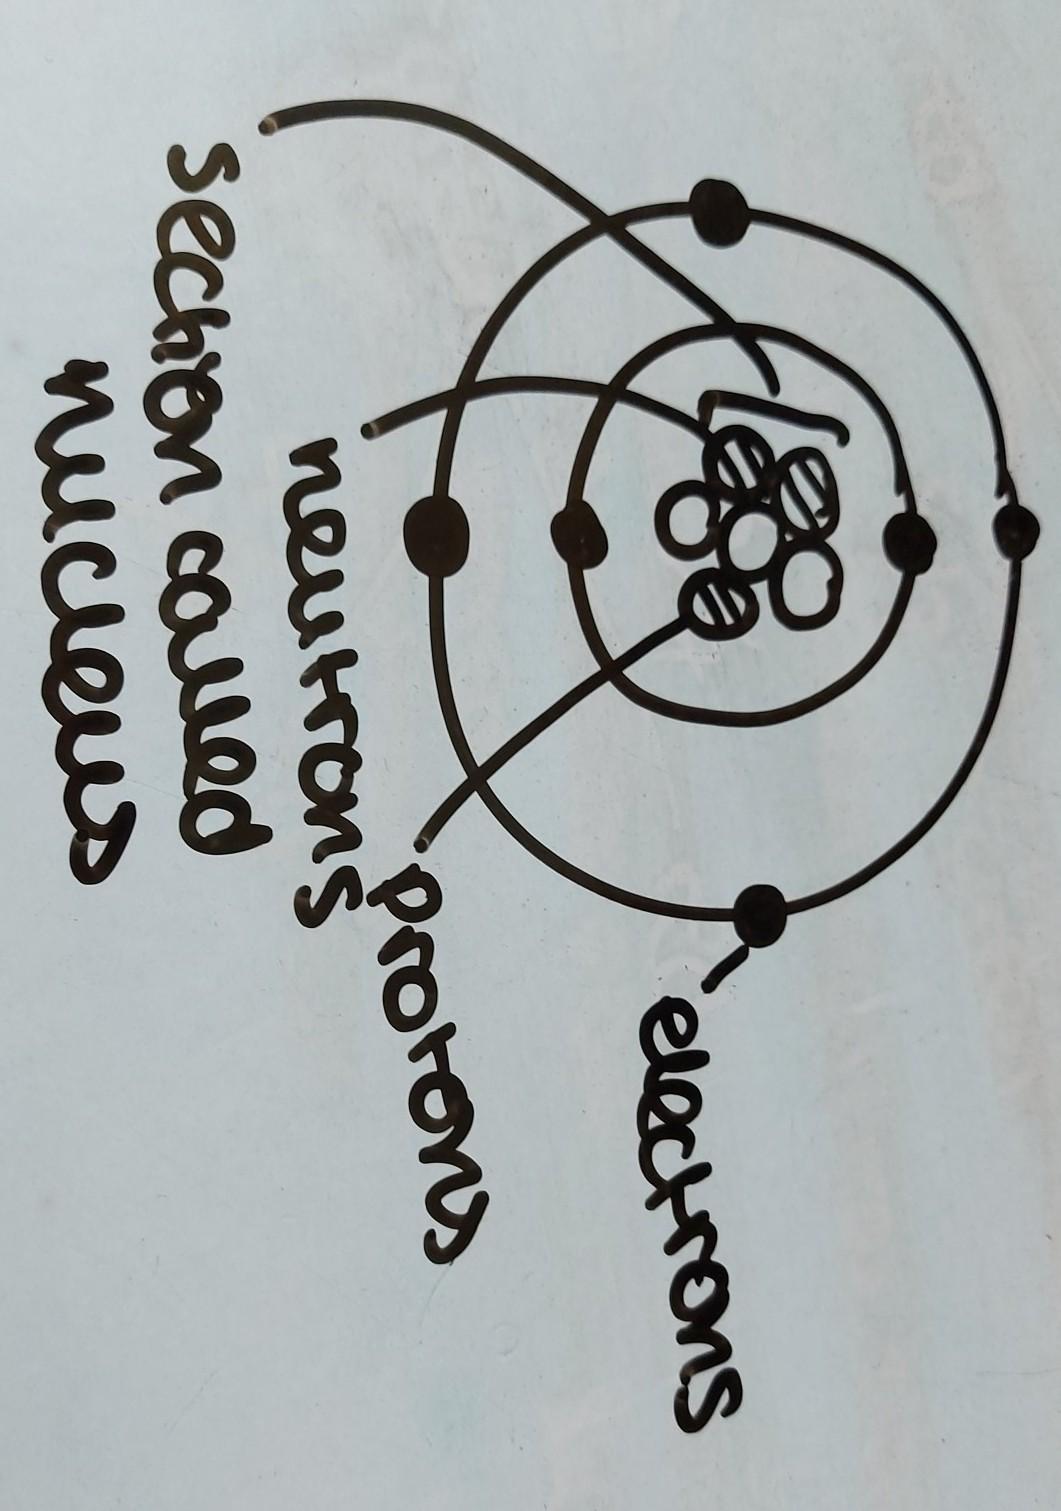 electrons
protons
neutrons
section called
nucleus